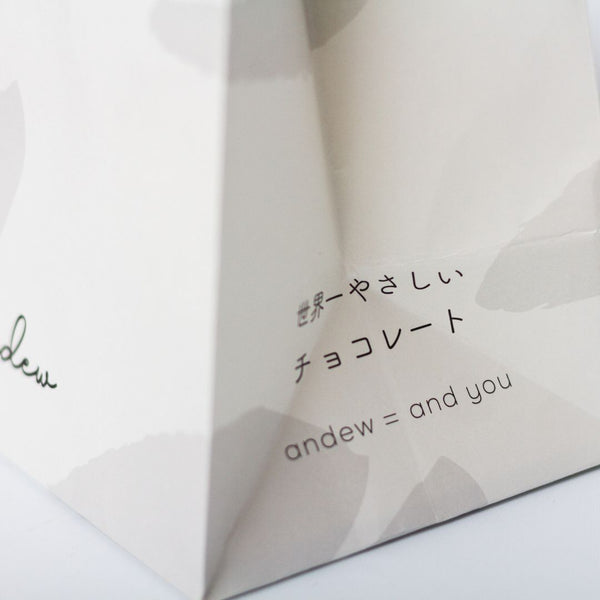 dew
世界一やさしい
チョコレート
andew = and you